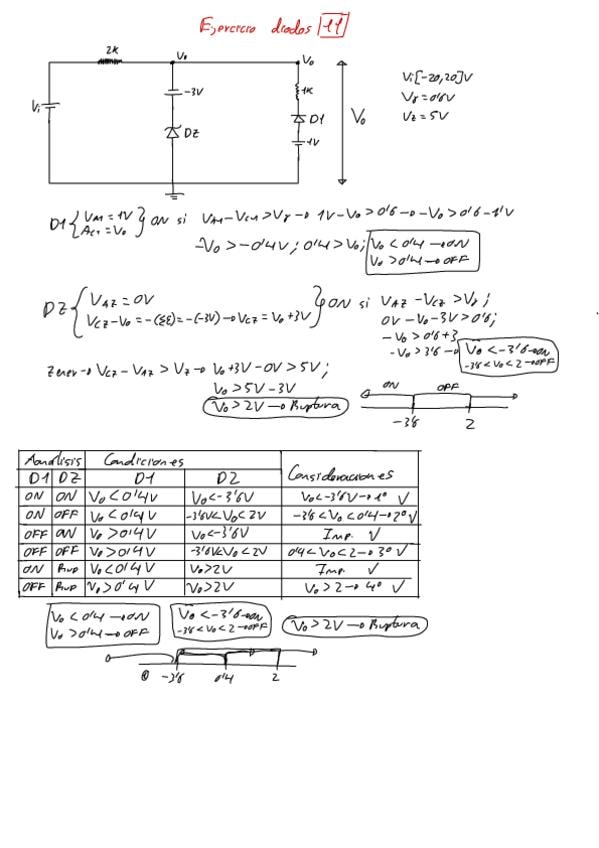 Ejercicio diodos 11
2K
Vo
Vo
-3V
1K
Vi
DZ
D1
1V
Vo
Vi[-20,20]V
Vγ=0'6V
Vz=5V
D1 { VA1=1V
AC1=Vo } ON si VA1-VC1>Vγ→1V-Vo>0'6→-Vo>0'6-1V
-Vo>-0'4V; 0'4>Vo; Vo<0'4→ON
Vo>0'4→OFF
DZ { VAZ=0V
VCZ-Vo=-(ΣE)=-(-3V)→VCZ=Vo+3V } ON si VAZ-VCZ>Vγ;
0V-Vo-3V>0'6;
-Vo>0'6+3
-Vo>3'6→ Vo<-3'6→ON
-3'6<Vo<2→OFF
Zener→VCZ-VAZ>Vz→Vo+3V-0V>5V;
Vo>5V-3V
Vo>2V→Ruptura
ON OFF
-3'6 2
Análisis Condiciones
D1 DZ D1 D2 Consideraciones
ON ON Vo<0'4V Vo<-3'6V Vo<-3'6V→1º √
ON OFF Vo<0'4V -3'6V<Vo<2V -3'6<Vo<0'4→2º √
OFF ON Vo>0'4V Vo<-3'6V Imp. √
OFF OFF Vo>0'4V -3'6V<Vo<2V 0'4<Vo<2→3º √
ON Rup Vo<0'4V Vo>2V Imp √
OFF Rup Vo>0'4V Vo>2V Vo>2→4º √
Vo<0'4→ON
Vo>0'4→OFF
Vo<-3'6→ON
-3'6<Vo<2→OFF
Vo>2V→Ruptura
0 -3'6 0'4 2